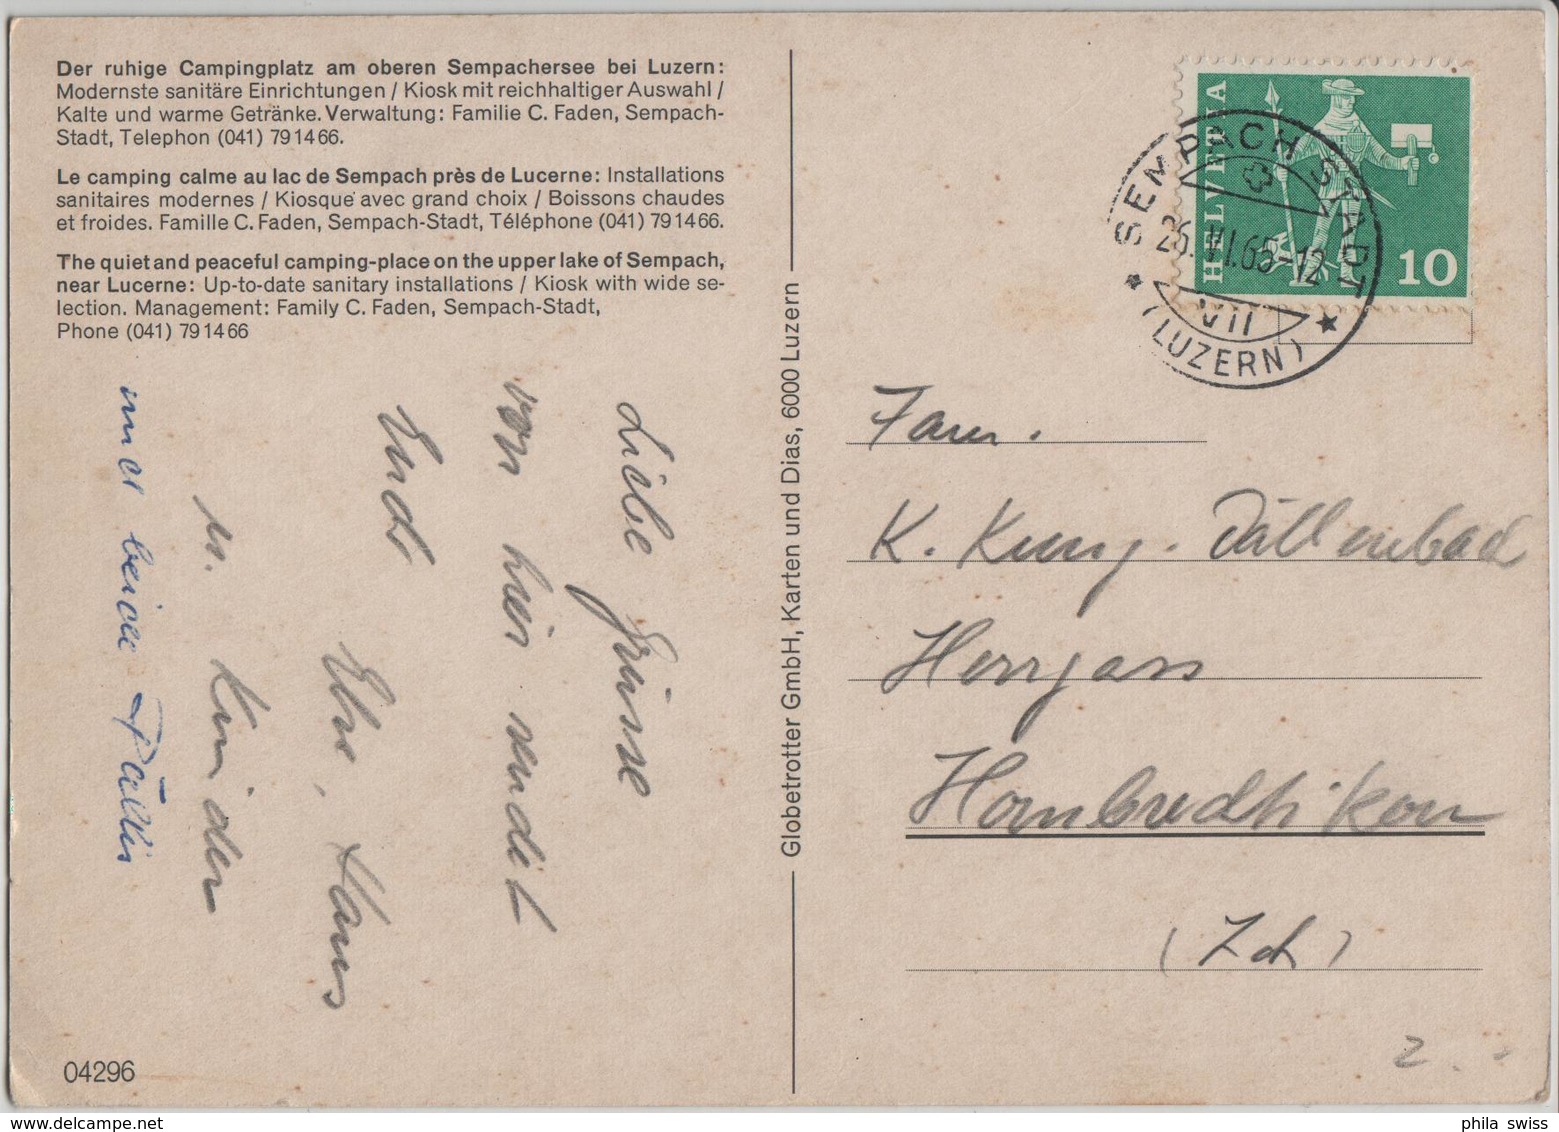 Der ruhige Campingplatz am oberen Sempachersee bei Luzern:
Modernste sanitäre Einrichtungen / Kiosk mit reichhaltiger Auswahl /
Kalte und warme Getränke. Verwaltung: Familie C. Faden, Sempach-
Stadt, Telephon (041) 791466.
Le camping calme au lac de Sempach près de Lucerne: Installations
sanitaires modernes / Kiosque avec grand choix / Boissons chaudes
et froides. Famille C. Faden, Sempach-Stadt, Téléphone (041) 791466.
The quiet and peaceful camping-place on the upper lake of Sempach,
near Lucerne: Up-to-date sanitary installations / Kiosk with wide se-
lection. Management: Family C. Faden, Sempach-Stadt,
Phone (041) 791466
Liebe Grüsse
von hier sendet
Euch
Hans
u. Kinder
beide
04296
Globetrotter GmbH, Karten und Dias, 6000 Luzern
HELVETIA
10
SEMPACH STADT
26.VI.65-12
VII
(LUZERN)
Fam.
K. Kung.
Herrgass
Hombrechtikon
(Zch)
2
phila swiss